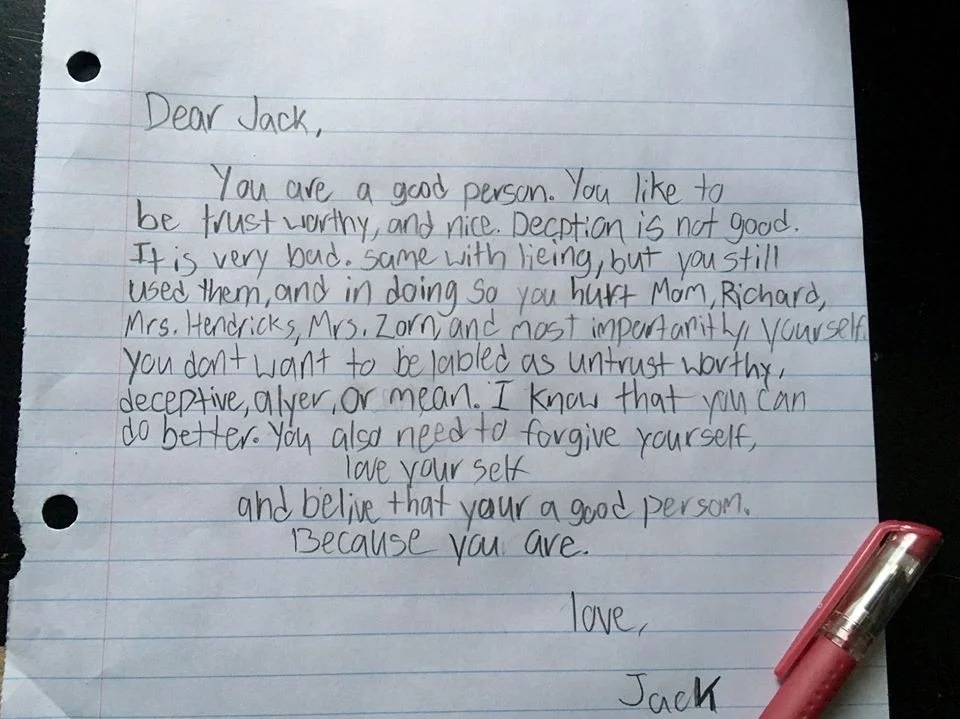 Dear Jack,
You are a good person. You like to
be trust worthy, and nice. Decption is not good.
It is very bad. Same with lieing, but you still
used them, and in doing so you hurt Mom, Richard,
Mrs. Hendricks, Mrs. Zorn, and most impartanithy, yourself.
you don't want to be labled as untrust worthy,
deceptive, alyer, or mean. I know that you can
do better. You also need to forgive yourself,
love your self
and belive that your a good person.
Because you are.
love,
Jack